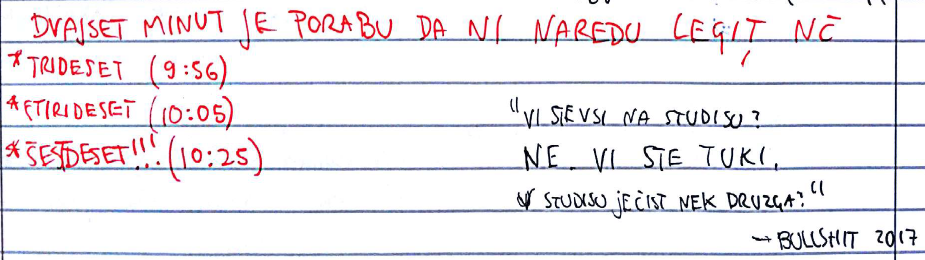 DVAJSET MINUT JE PORABU DA NI NAREDU LEGIT NČ
*TRIDESET (9:56)
*ŠTIRIDESET (10:05)
*ŠESTDESET!!! (10:25)
"VI STE VSI NA STUDISU?
NE. VI STE TUKI.
V STUDISU JE ČIST NEK DRUZGA?"
→ BULLSHIT 2017